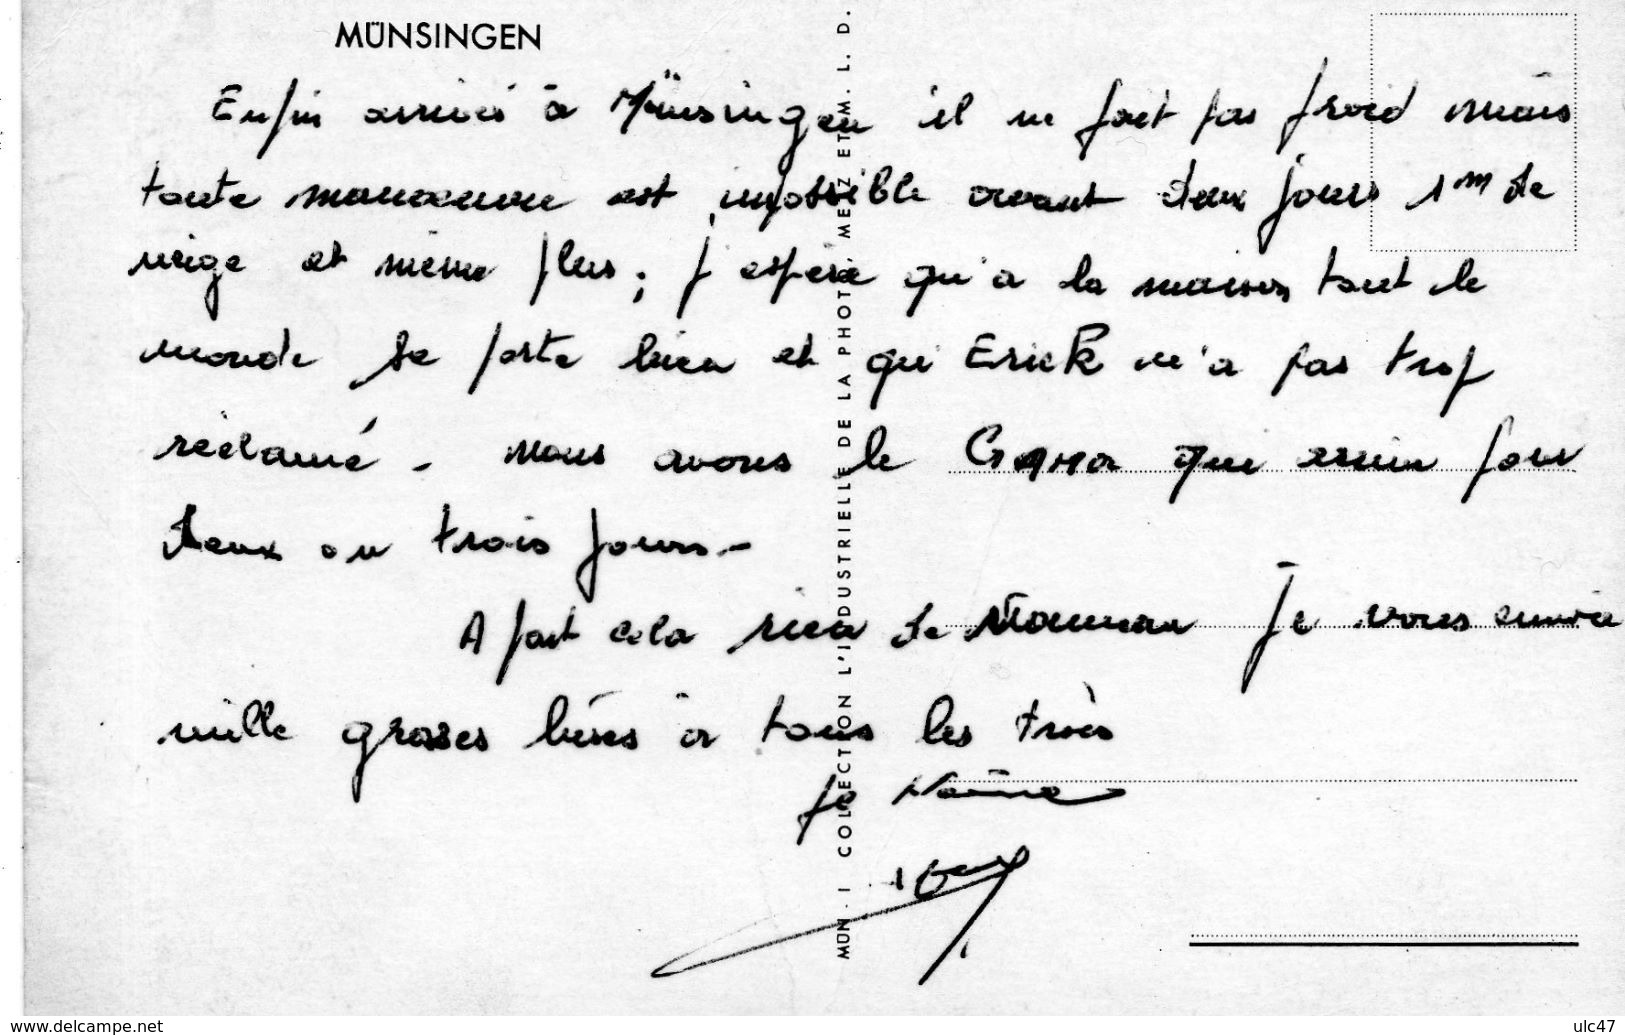 MÜNSINGEN
Enfin arrivés à Münsingen il ne fait pas froid mais
toute manoeuvre est impossible avant deux jours 1m de
neige et même plus; j'espère qu'a la maison tout le
monde se porte bien et qui Erick n'a pas trop
réclamé - nous avons le qui arrive pour
deux ou trois jours -
A part cela rien de Nouveau Je vous envoie
mille grosses bises à tous les trois
MÜN. I COLLECTION L'INDUSTRIELLE DE LA PHOTO, METZ ET M. L. D.
www.delcampe.net
ulc47